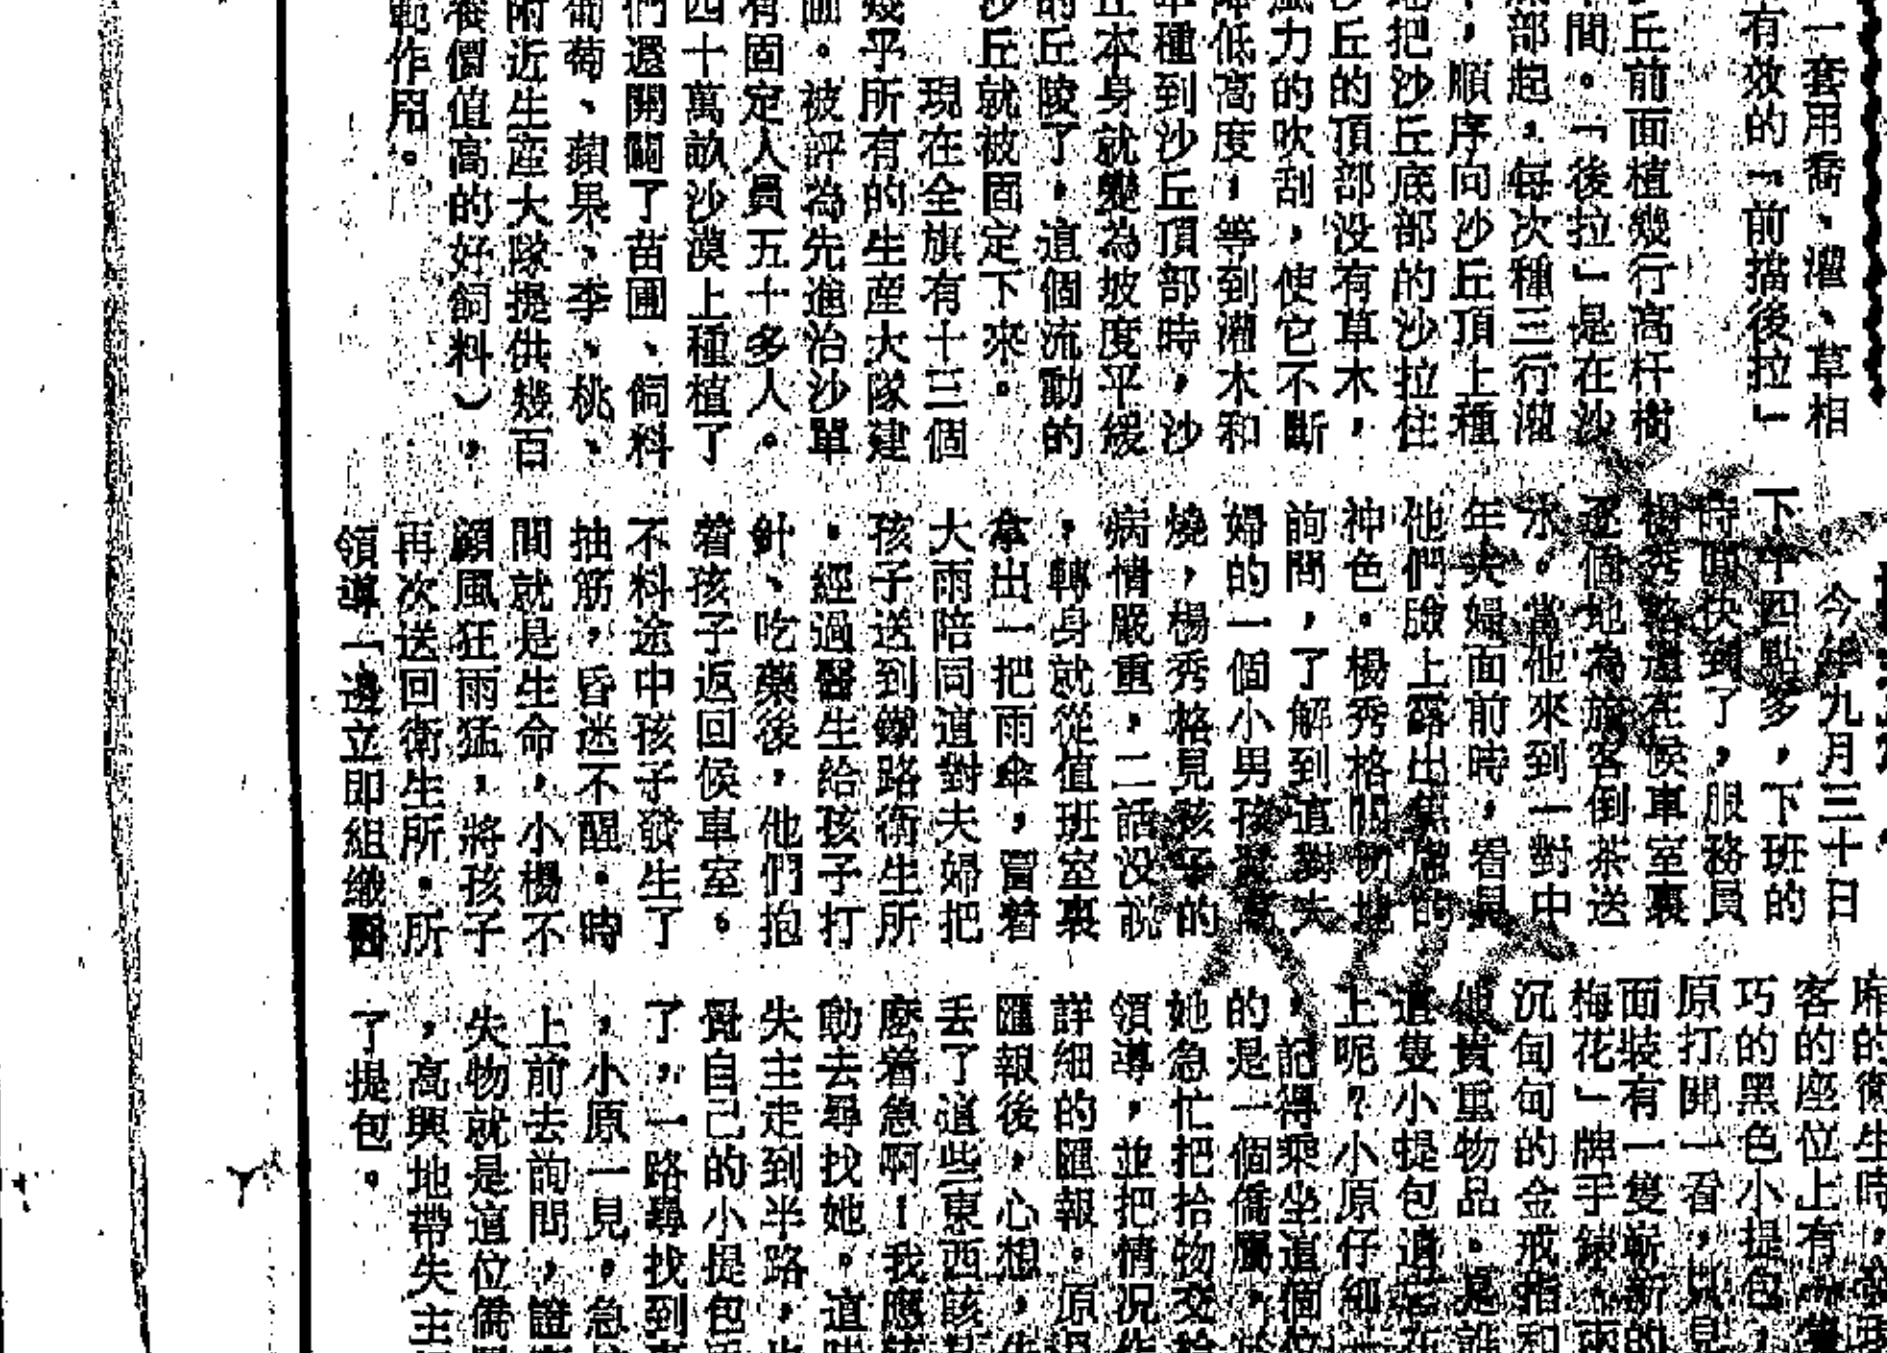 一套用喬、灌、草相
有效的「前擋後拉」
丘前面植幾行高杆樹
間。「後拉」是在沙
部起，每次種三行灌
，順序向沙丘頂上種
把沙丘底部的沙拉住
沙丘的頂部没有草木，
風力的吹刮，使它不斷
降低高度，等到灌木和
草種到沙丘頂部時，沙
丘本身就變為坡度平緩
的丘陵了，這個流動的
沙丘就被固定下來。
現在全旗有十三個
幾乎所有的生産大隊建
。被評為先進治沙單
有固定人員五十多人。
四十萬畝沙漠上種植了
們還開闢了苗圃、飼料
葡萄、蘋果、李、桃、
附近生産大隊提供幾百
養價值高的好飼料），
範作用。
今年九月三十日
下午四點多，下班的
時間快到了，服務員
楊秀格還在候車室裏
逐個地為旅客倒茶送
水。當他來到一對中
年夫婦面前時，看見
他們臉上露出焦慮的
神色。楊秀格關切地
詢問，了解到這對夫
婦的一個小男孩發高
燒，楊秀格見孩子的
病情嚴重，二話没説
，轉身就從值班室裏
拿出一把雨傘，冒着
大雨陪同這對夫婦把
孩子送到鐵路衛生所
，經過醫生給孩子打
針、吃藥後，他們抱
着孩子返回候車室。
不料途中孩子發生了
抽筋，昏迷不醒。時
間就是生命，小楊不
顧風狂雨猛，將孩子
再次送回衛生所。所
領導一邊立即組織醫
廂的衛生時，
客的座位上有一隻
巧的黑色小提包，
原打開一看，只見
面裝有一隻嶄新的
梅花」牌手錶，兩
沉甸甸的金戒指和
他貴重物品。是誰
這隻小提包遺忘在
上呢？小原仔細
，記得乘坐這個位
的是一個僑屬，於
她急忙把拾物交給
領導，並把情況作
詳細的匯報。原
匯報後，心想，失
丢了這些東西該
麽着急啊！我應該
動去尋找她。這時
失主走到半路，也
覺自己的小提包丢
了，一路尋找到車
，小原一見，急
上前去詢問，證
失物就是這位僑
，高興地帶失主
了提包。